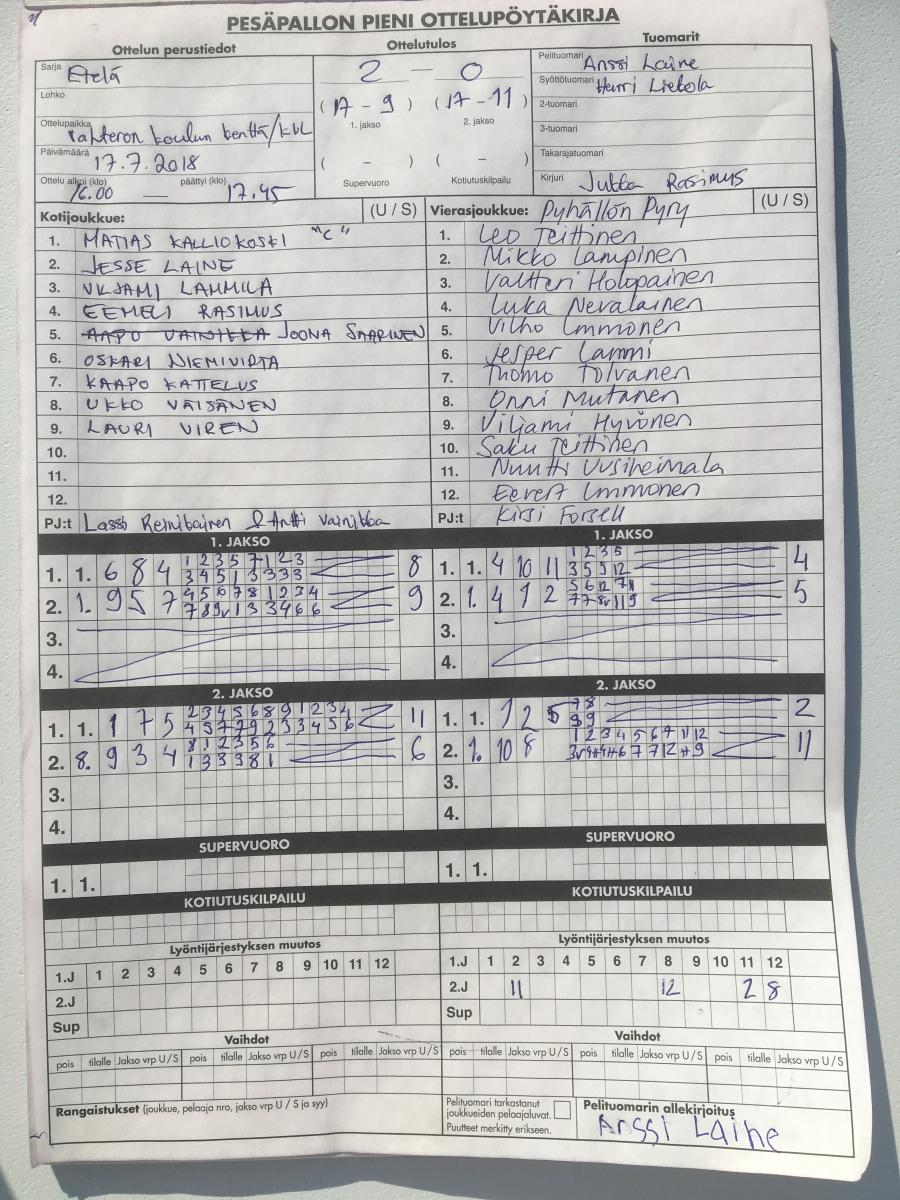 PESÄPALLON PIENI OTTELUPÖYTÄKIRJA
Ottelun perustiedot
Sarja Etelä
Lohko
Ottelupaikka koulun kenttä/KVL
Päivämäärä 17.7.2018
Ottelu alkoi (klo) 16.00 — päättyi (klo) 17.45
Ottelutulos
2 — 0
(17 - 9) (17 - 11)
1. jakso 2. jakso
( - ) ( - )
Supervuoro Kotiutuskilpailu
Tuomarit
Pelituomari Anssi Laine
Syöttötuomari Henri
2-tuomari
3-tuomari
Takarajatuomari
Kirjuri Jukka Rasimus
Kotijoukkue: (U / S)
1. MATIAS KALLIOKOSKI "C"
2. JESSE LAINE
3. VILJAMI LAMMILA
4. EEMELI RASIMUS
5. AAPO VAINIKKA JOONA SAARINEN
6. OSKARI NIEMIVIRTA
7. KAAPO KATTELUS
8. UKKO VÄISÄNEN
9. LAURI VIREN
10.
11.
12.
PJ:t Lassi Reinikainen & Antti Vainikka
Vierasjoukkue: Pyhällön Pyry (U / S)
1. Leo Teittinen
2. Mikko Lampinen
3. Valtteri Holopainen
4. Luka Nevalainen
5. Vilho Immonen
6. Jesper Lammi
7. Tuomo Tolvanen
8. Onni Mutanen
9. Viljami Hyvönen
10. Saku Teittinen
11. Nuutti Uusiheimala
12. Eevert Immonen
PJ:t Kirsi Forsell
1. JAKSO
1. 1. 6 8 4 1 2 3 5 7 1 2 3 8
3 4 5 1 3 3 3 3
2. 1. 9 5 7 4 5 6 7 8 1 2 3 4 9
7 8 9v 1 3 3 4 6 6
3.
4.
1. JAKSO
1. 1. 4 10 11 1 2 3 5 4
3 5 5 12
2. 1. 4 1 2 5 6 12 7 11 5
7 7 8v 11 9
3.
4.
2. JAKSO
1. 1. 1 7 5 2 3 4 5 6 8 9 1 2 3 4 11
4 5 7 7 9 2 3 3 4 5 6
2. 8. 9 3 4 8 1 2 3 5 6 6
1 3 3 3 8 1
3.
4.
2. JAKSO
1. 1. 12 5 7 8 2
9 9
2. 1. 10 8 1 2 3 4 5 6 7 11 12 11
3.
4.
SUPERVUORO
1. 1.
SUPERVUORO
1. 1.
KOTIUTUSKILPAILU
KOTIUTUSKILPAILU
Lyöntijärjestyksen muutos
1.J 1 2 3 4 5 6 7 8 9 10 11 12
2.J
Sup
Lyöntijärjestyksen muutos
1.J 1 2 3 4 5 6 7 8 9 10 11 12
2.J 11 12 2 8
Sup
Vaihdot
pois tilalle Jakso vrp U/S pois tilalle Jakso vrp U/S pois tilalle Jakso vrp U/S
Vaihdot
pois tilalle Jakso vrp U/S pois tilalle Jakso vrp U/S pois tilalle Jakso vrp U/S
Rangaistukset (joukkue, pelaaja nro, jakso vrp U / S ja syy)
Pelituomari tarkastanut
joukkueiden pelaajaluvat.
Puutteet merkitty erikseen.
Pelituomarin allekirjoitus
Anssi Laine